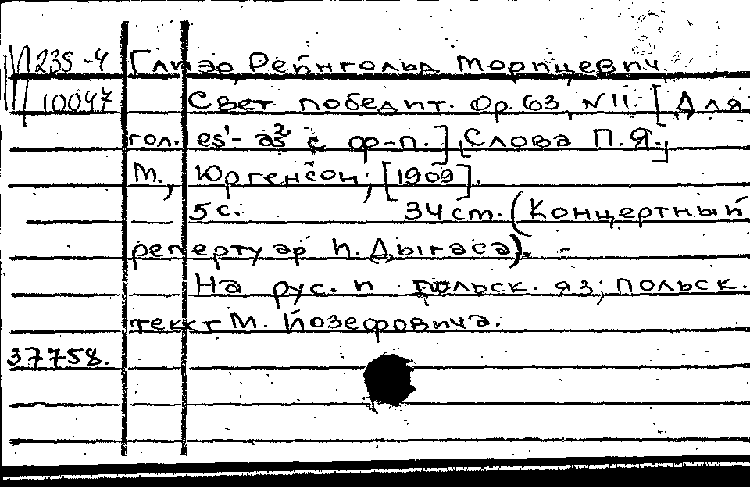 N 235-4 Глизо, Рейнгольд Морицевич
10047 Свет победит. Op. 63, N 11. [Для
гол. es¹- as² с ф-п.] [Слова П.Я.]
М., Юргенсон, [1909].
5 с. 34 cm. (Концертный
репертуар И. Дыгаса). -
На рус. и польск. яз; польск.
текст М. Йозефовича.
37758.